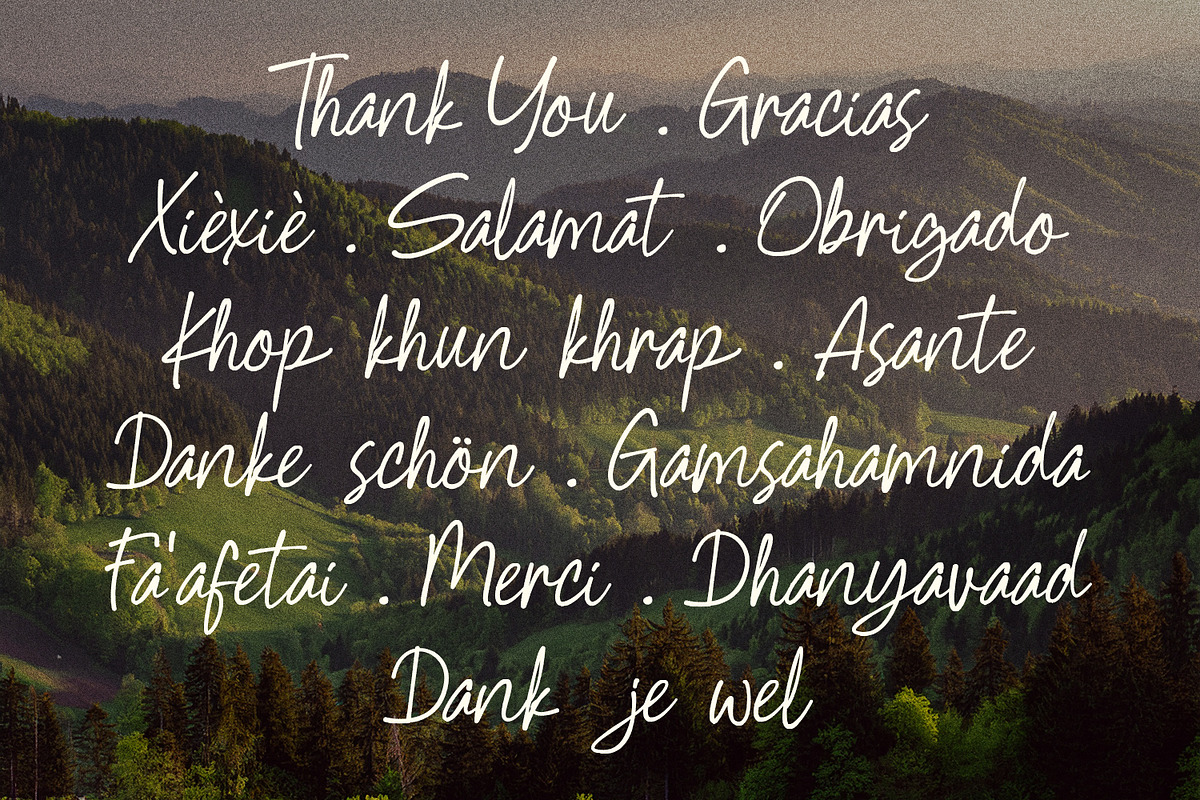 Thank You . Gracias
Xièxiè . Salamat . Obrigado
Khop khun khrap . Asante
Danke schön . Gamsahamnida
Fa'afetai . Merci . Dhanyavaad
Dank je wel